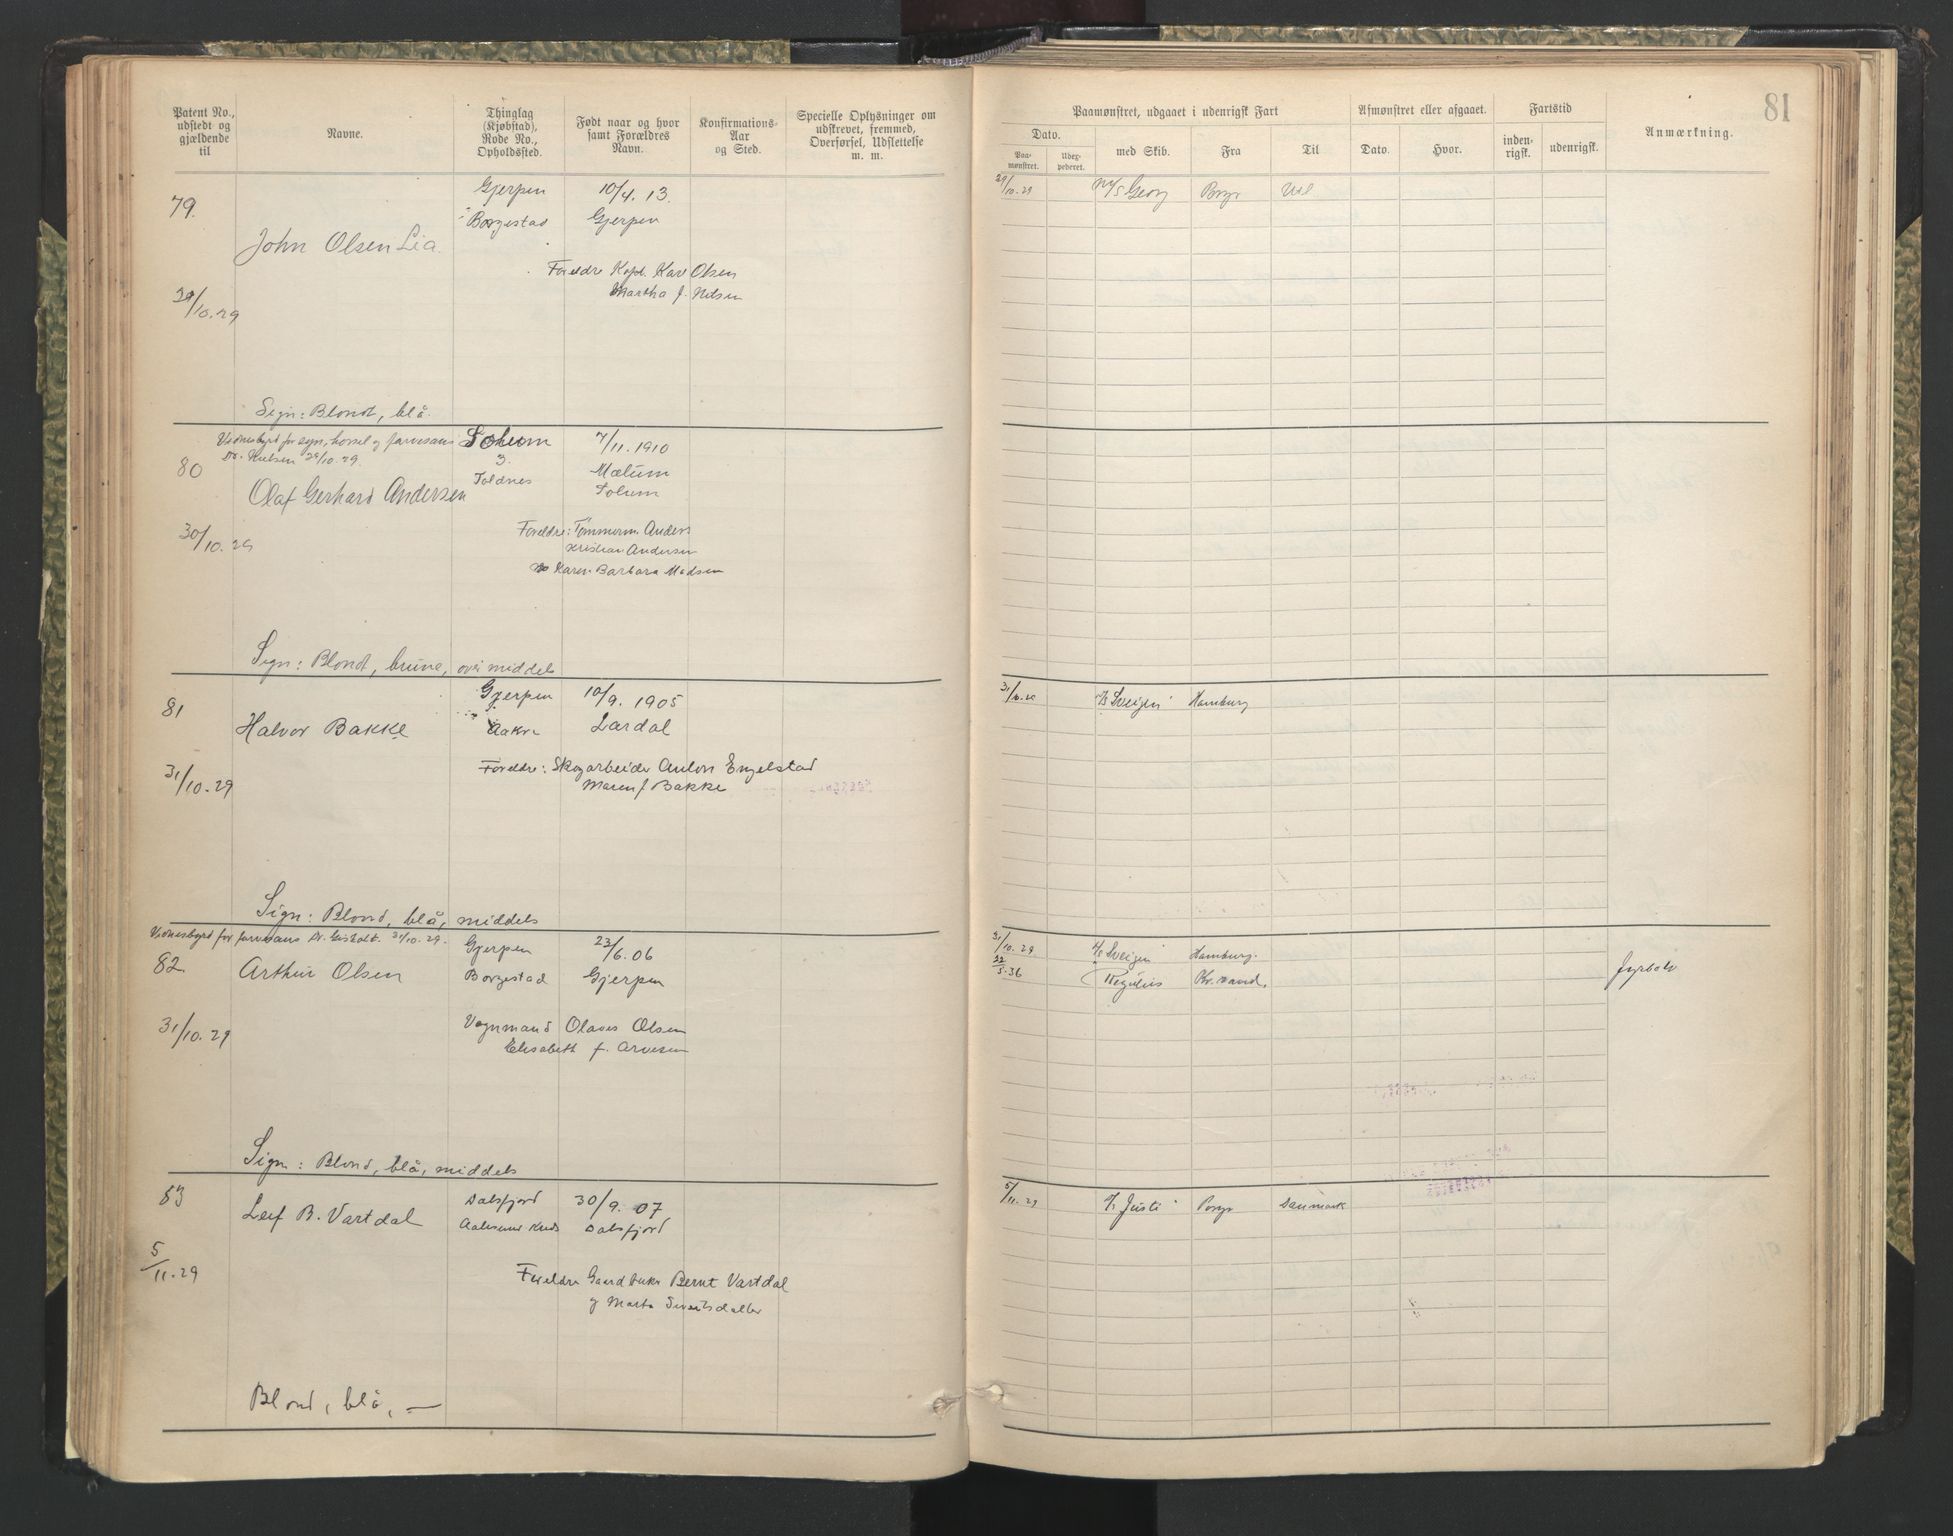 Patent No., udstedt og gjældende til
Navne.
Thinglag (Kjøbstad), Rode No., Opholdssted.
Født naar og hvor samt Forældres Navn.
Konfirmations-Aar og Sted.
Specielle Oplysninger om udskrevet, fremmed, Overførsel, Udslettelse m. m.
79.
John Olsen Lia.
Gjerpen
Borgestad
10/4. 13.
Gjerpen
Foreldre Kapt. Karl Olsen
Martha f. Nilsen
29/10. 29
Sign: Blond, blå.
Vidnesbyrd for syn, hørsel og farvesans
Dr. Nielsen 29/10. 29.
80
Olaf Gerhard Andersen
Solum
3.
Toldnes
7/11. 1910
Mælum
Solum
30/10. 29
Foreldre: Tømmerm. Anders
Kristian Andersen
Karen Barbara Madsen
Sign: Blond, brune, over middels
81
Halvor Bakke
Gjerpen
Aakre
10/9. 1905
Lardal
31/10. 29
Foreldre: Skogarbeider Anton Engelstad
Maren f. Bakke
Sign: Blond, blå, middels
Vidnesbyrd for farvesans Dr. 31/10. 29.
82
Arthur Olsen
Gjerpen
Borgestad
23/6. 06
Gjerpen
31/10. 29
Vognmand Olaves Olsen
Elisabeth f. Arvesen
Sign: Blond, blå, middels
83
Leif B. Vartdal
Dalsfjord
Aalesund
30/9. 07
Dalsfjord
5/11. 29
Foreldre Gaardbruker Bernt Vartdal
og Marta Sivertsdatter
Blond, blå, —
81
Paamønstret, udgaaet i udenrigsk Fart
Afmønstret eller afgaaet.
Fartstid
Anmærkning.
Dato.
Paa-mønstret.
Udex-pederet.
med Skib.
Fra
Til
Dato.
Hvor.
inden-rigsk.
udenrigsk.
29/10. 29
M/S Georg
Brgr
Utl
31/10. 29
Sveigen
Hamburg
31/10. 29
Sveigen
Hamburg.
22/5. 36
Regulus
Kr. sand.
Fyrbøter
5/11. 29
Justi
Porgr
Danmark